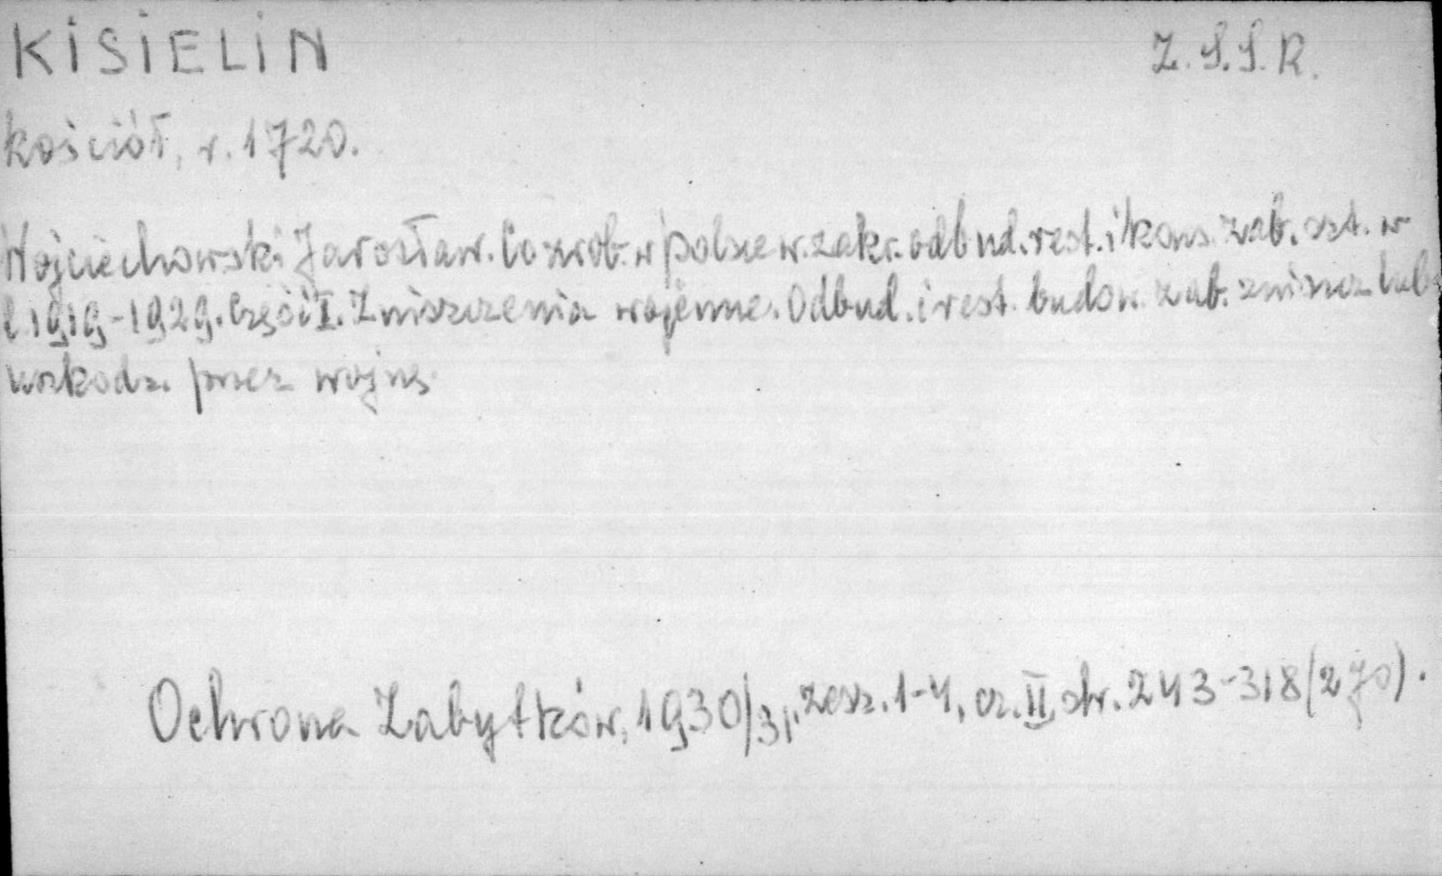 KISIELIN
Z.S.S.R.
kościół, r. 1720.
Wojciechowski Jarosław. Co zrob. w Polsce w zakr. odbud. rest. i kons. zab. szt. w
l. 1919-1929. Część I. Zniszczenia wojenne. Odbud. i rest. budow. zab. zniszcz lub
uszkodz. przez wojnę.
Ochrona Zabytków, 1930/31. zesz. 1-4, cz. II, str. 243-318 (270).